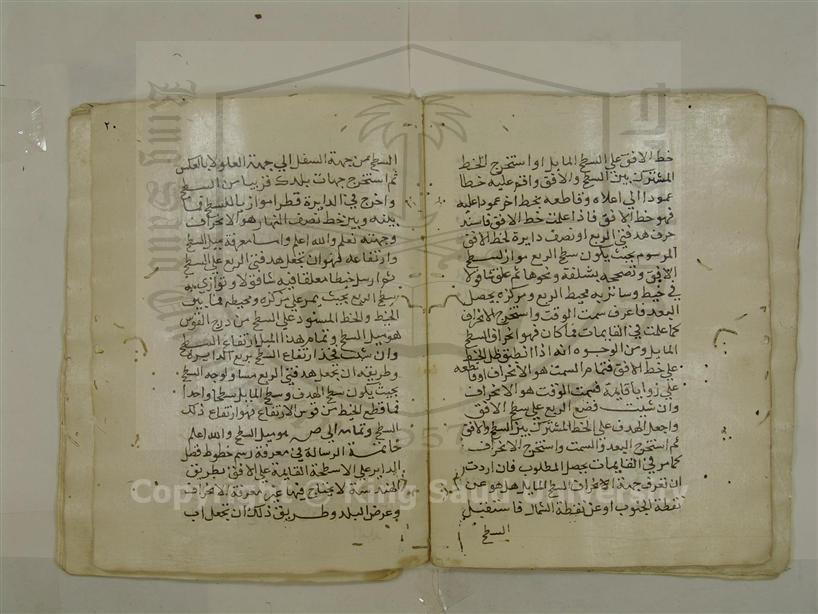 خط الافق على السطح المايل او استخرج الخط
المشترك بين السطح والافق واقم عليه خطا
عمودا الى اعلاه وقاطعه بخط اخر عمودا عليه
فهو خط الافق فاذا علمت خط الافق فاستد
حرف هدفتي الربع او نصف دايرة لخط الافق
المرسوم بحيث يكون سطح الربع مواز لسطح
الافق وتصححه بشلقة ونحوها ثم علق شاقولا
في خيط وساتر به محيط الربع ومركزه يحصل
البعد فاعرف سمت الوقت واستخرج الانحراف
كما علمت في القايمات فما كان فهو انحراف السطح
المايل ومن الوجوه انه اذا انطبق ظل الخيط
على خط الافق فتمام السمت هو الانحراف او قاطعه
على زوايا قايمة فسمت الوقت هو الانحراف
وان شئت فضع الربع على سطح الافق
واجعل الهدف على الخط المشترك بين السطح والافق
ثم استخرج البعد والسمت واستخرج الانحراف
كما مر في القايمات يحصل المطلوب فان اردت
ان تعرف جهة الانحراف السطح المايل هل هو عن
نقطة الجنوب او عن نقطة الشمال فاستقبل
السطح
٢٠
السطح من جهة السفل الى جهة العلو لا بالعكس
ثم استخرج جهات بلدك قريبا من السطح
واخرج في الدايرة قطرا موازيا للسطح فما
بينه وبين خط نصف النهار هو الانحراف
وجهته تعلم والله اعلم واما معرفة ميل السطح
وارتفاعه فهو ان تجعل هدفتي الربع على السطح
ثم ارسل خيطا معلقا فيه شاقولا وتوازي به
سطح الربع بحيث يمر على مركزه ومحيطه فما بين
الخيط والخط المسنود على السطح من درج القوس
هو ميل السطح وتمام هذا الميل ارتفاع السطح
وان شئت فخذ ارتفاع السطح بربع الدايرة
وطريقه ان تجعل هدفتي الربع مساو لوجه السطح
بحيث يكون سطح الهدف وسطح المايل سطحا واحدا
فما قطع الخيط من قوس الارتفاع فهو ارتفاع ذلك
السطح وتمامه الى ص هو ميل السطح والله اعلم
خاتمة الرسالة في معرفة رسم خطوط فضل
الداير على الاسطحة القايمة على الافق بطريق
الهندسة لا يحتاج فيها غير معرفة الانحراف
وعرض البلد وطريق ذلك ان تجعل اب
Copyright © King Saud University